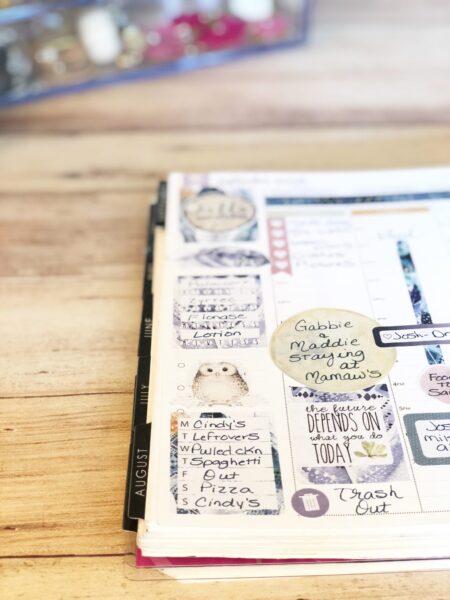 hello
Zyrtec
Flonase
Lotion
Gabbie
&
Maddie
staying
at
Mamaw's
Josh-Dr
the future
DEPENDS ON
what you do
TODAY
M Cindy's
T Leftovers
W Pulled ckn
T Spaghetti
F Out
S Pizza
S Cindy's
Trash
Out
JUNE
JULY
AUGUST